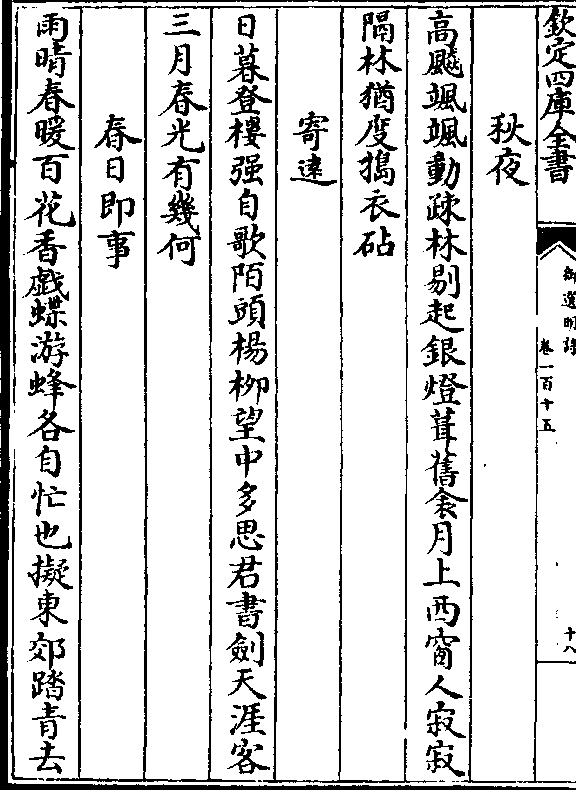 欽定四庫全書
御選明詩
卷一百十五
十八
秋夜
高飈颯颯動疎林剔起銀燈葺舊衾月上西窗人寂寂
隔林猶度擣衣砧
寄遠
日暮登樓强自歌陌頭楊柳望中多思君書劍天涯客
三月春光有幾何
春日即事
雨晴春暖百花香戯蝶游蜂各自忙也擬東郊踏青去